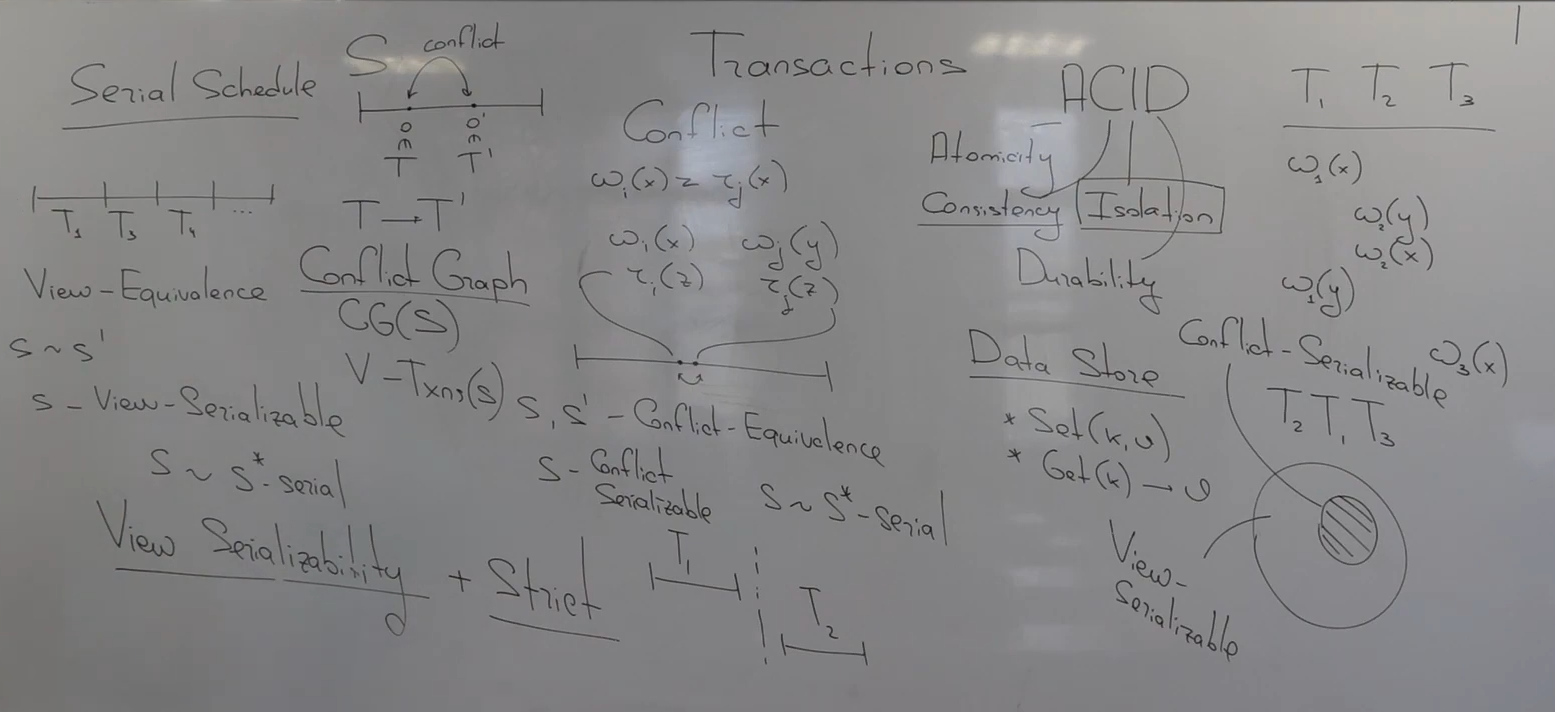 Transactions
Serial Schedule
T₁ T₃ T₄ ...
View-Equivalence
s ~ s'
s - View-Serializable
s ~ s* - serial
View Serializability + Strict
S
conflict
o o'
∈ ∈
T T'
T → T'
Conflict Graph
CG(S)
V - Txns(s)
Conflict
ωᵢ(x) τⱼ(x)
ωᵢ(x) ωⱼ(y)
τᵢ(z) τⱼ(z)
s, s' - Conflict-Equivalence
s - Conflict
Serializable
s ~ s* - serial
T₁
T₂
ACID
Atomicity
Consistency Isolation
Durability
Data Store
* Set(k, v)
* Get(k) → v
T₁ T₂ T₃
ω₁(x)
ω₂(y)
ω₂(x)
ω₁(y)
ω₃(x)
Conflict-Serializable
T₂ T₁ T₃
View-
Serializable